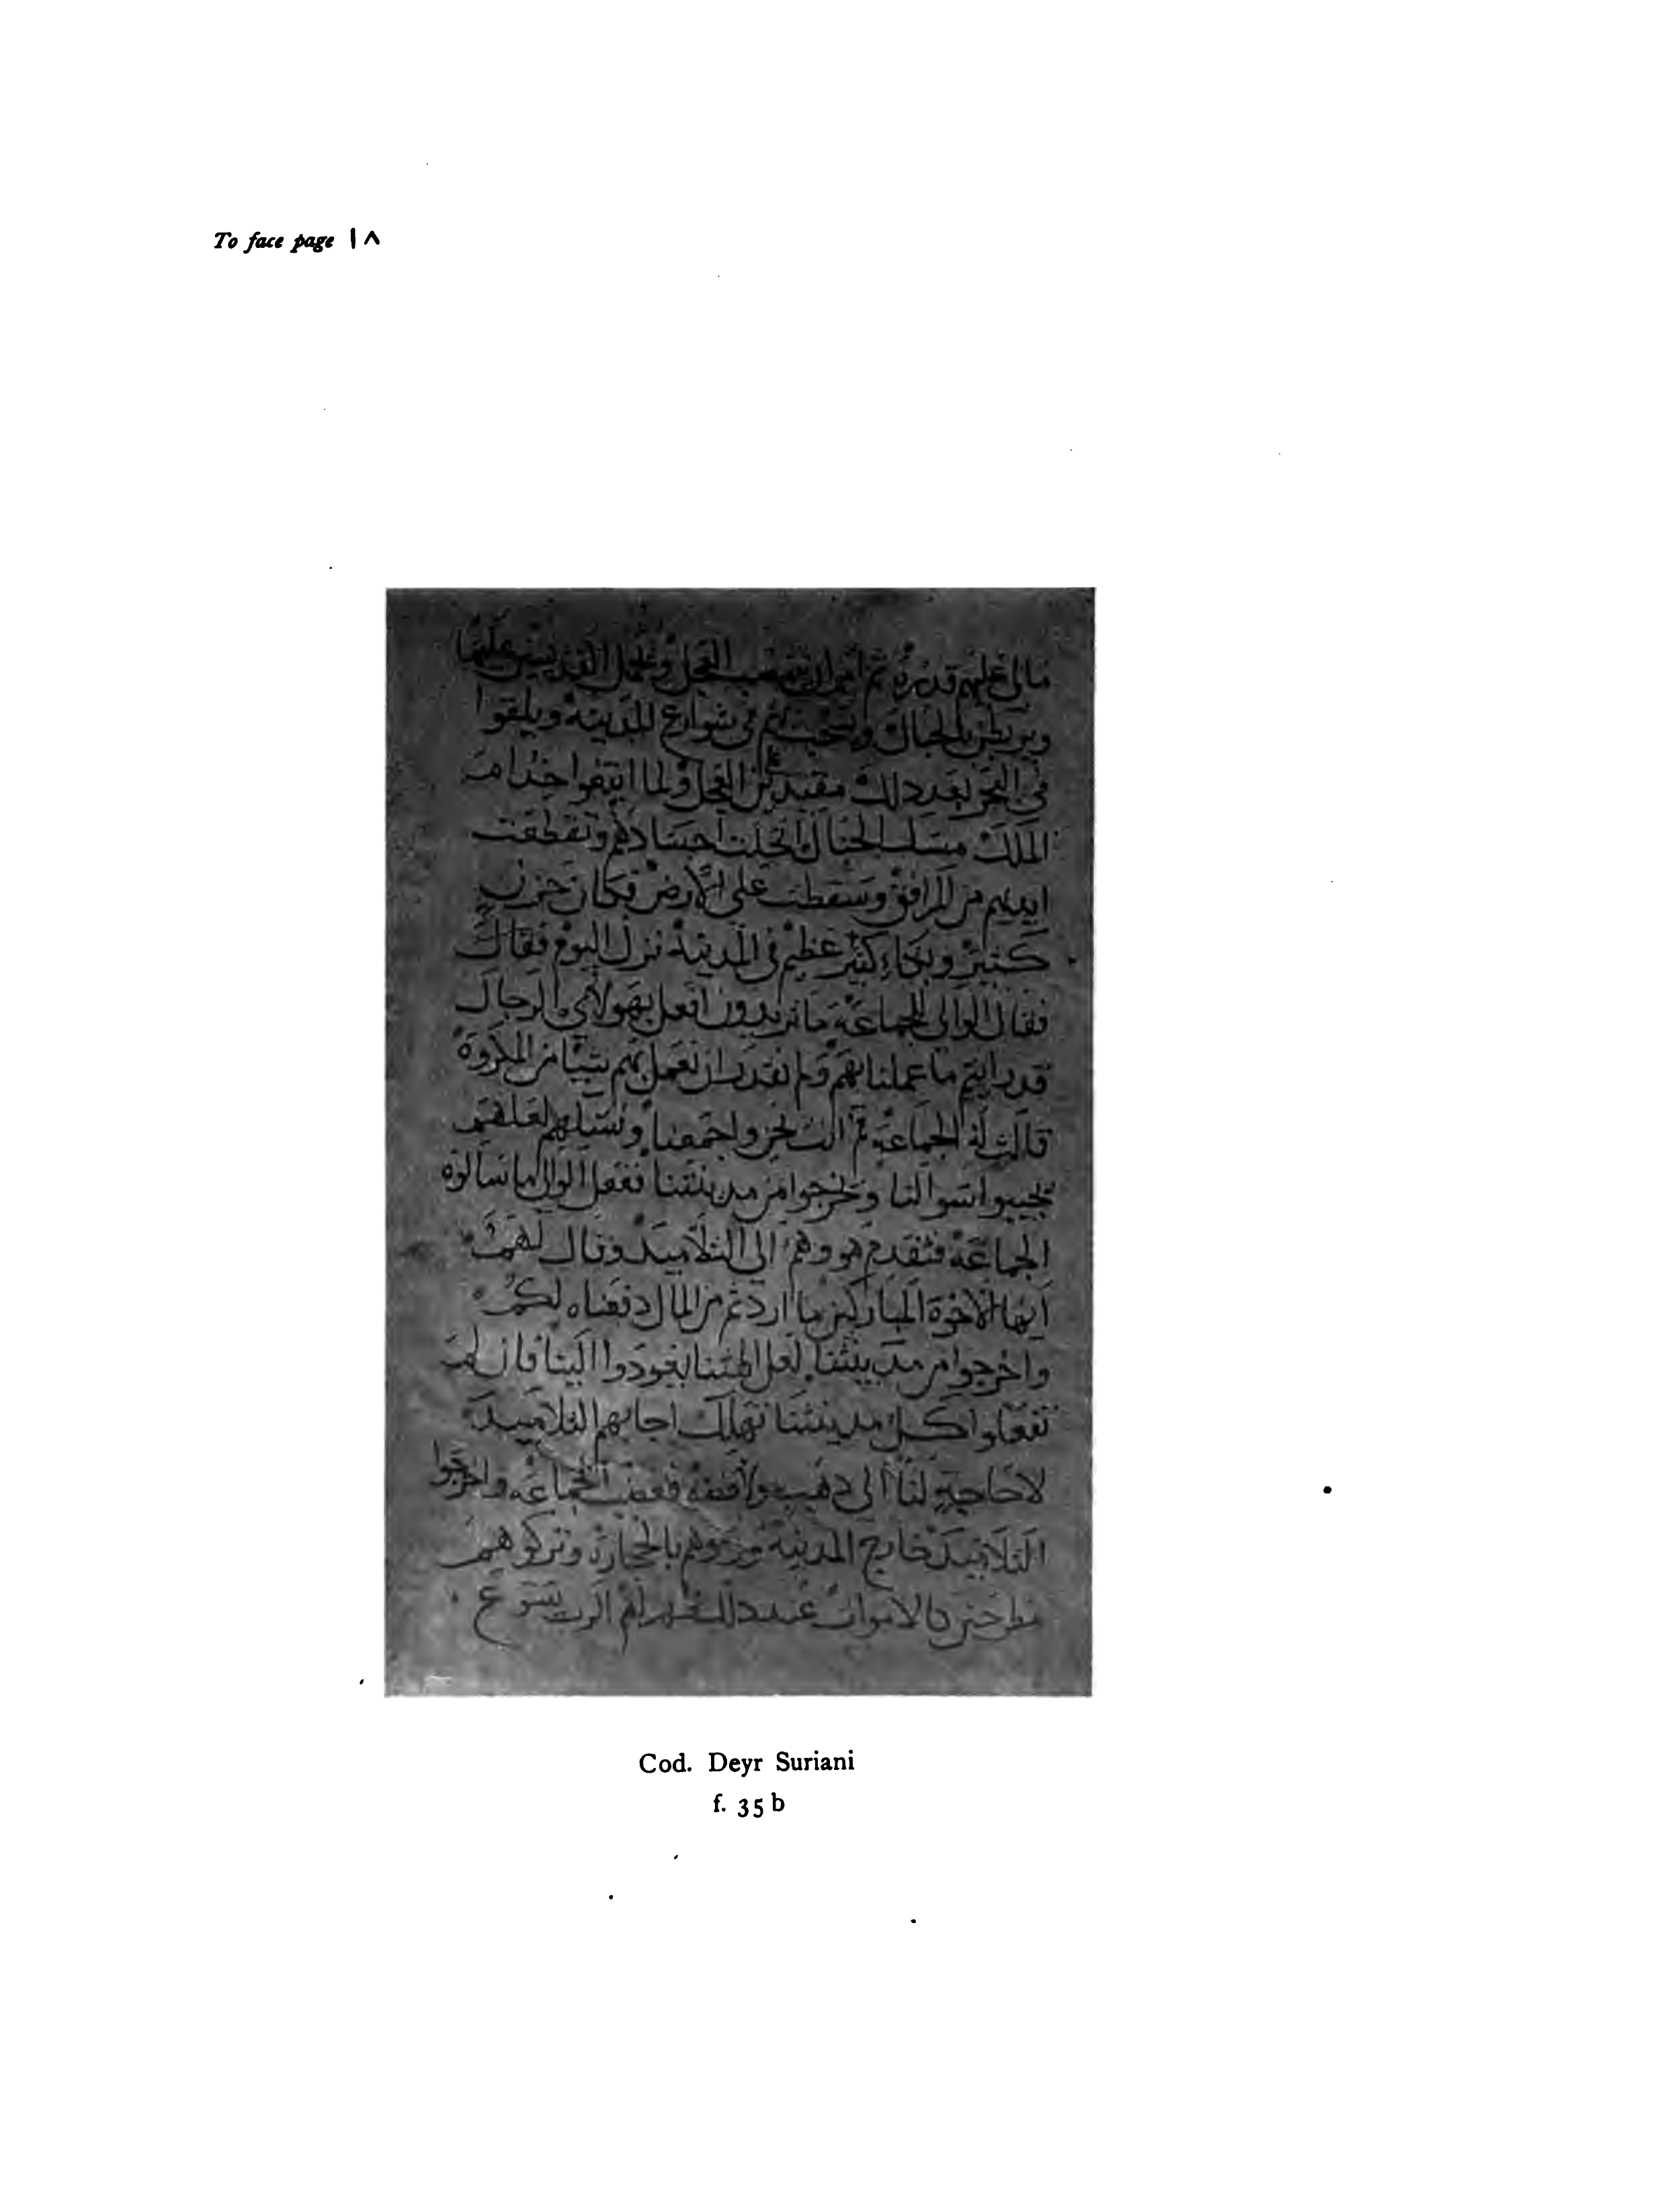 To face page ١٨
ما لى عليهم قدرة ثم امر ان العجل
ويربطن بالحبال وتسحبهم فى شوارع المدينة ويلقوا
فى البحر بعد دلك مقيدين العجل ولما خدام
الملك مسك الحبال انحلت اجسادهم وتقطعت
ايديهم من المرافق وسقطت على الارض فكان حزن
كتير وبكاء كثير عظيم فى المدينة نزل اليوم فقال
فقال الوالى للجماعة ما تريدون افعل بهولاى الرجال
قد رايتم ما عملنا بهم ولم نقدر ان نعمل بهم شيا من المكروة
قالت له الجماعة قم انت نحن واجمعنا ونسلهم لعلهم
يجيبوا سوالنا ويخرجوا من مدينتنا ففعل الوالى ما سالوه
الجماعة فتقدم هو وهم الى التلاميد وقال لهم
ايها الاخوة المباركين ما اردتم من المال دفعناه لكم
واخرجوا من مدينتنا لعل الهتنا يعودوا الينا فان لم
تفعلوا كل مدينتنا تهلك اجابهم التلاميد
لا حاجة لنا الى دهب ولا فضة فغضب الجماعة واخرجوا
التلاميد خارج المدينة ورموهم بالحجارة وتركوهم
مطرحين كالاموات عند دلك ظهر لهم الرب يسوع
Cod. Deyr Suriani
f. 35 b